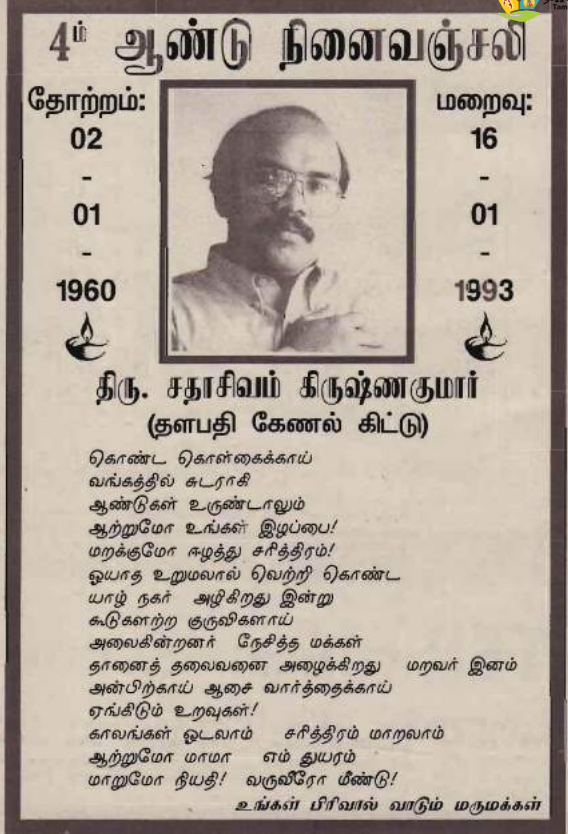 4ம் ஆண்டு நினைவஞ்சலி
தோற்றம்:
02
-
01
-
1960
மறைவு:
16
-
01
-
1993
திரு. சதாசிவம் கிருஷ்ணகுமார்
(தளபதி கேணல் கிட்டு)
கொண்ட கொள்கைக்காய்
வங்கத்தில் சுடராகி
ஆண்டுகள் உருண்டாலும்
ஆற்றுமோ உங்கள் இழப்பை!
மறக்குமோ ஈழத்து சரித்திரம்!
ஓயாத உறுமலால் வெற்றி கொண்ட
யாழ் நகர் அழிகிறது இன்று
கூடுகளற்ற குருவிகளாய்
அலைகின்றனர் நேசித்த மக்கள்
தானைத் தலைவனை அழைக்கிறது மறவர் இனம்
அன்பிற்காய் ஆசை வார்த்தைக்காய்
ஏங்கிடும் உறவுகள்!
காலங்கள் ஓடலாம் சரித்திரம் மாறலாம்
ஆற்றுமோ மாமா எம் துயரம்
மாறுமோ நியதி! வருவீரோ மீண்டு!
உங்கள் பிரிவால் வாடும் மருமக்கள்